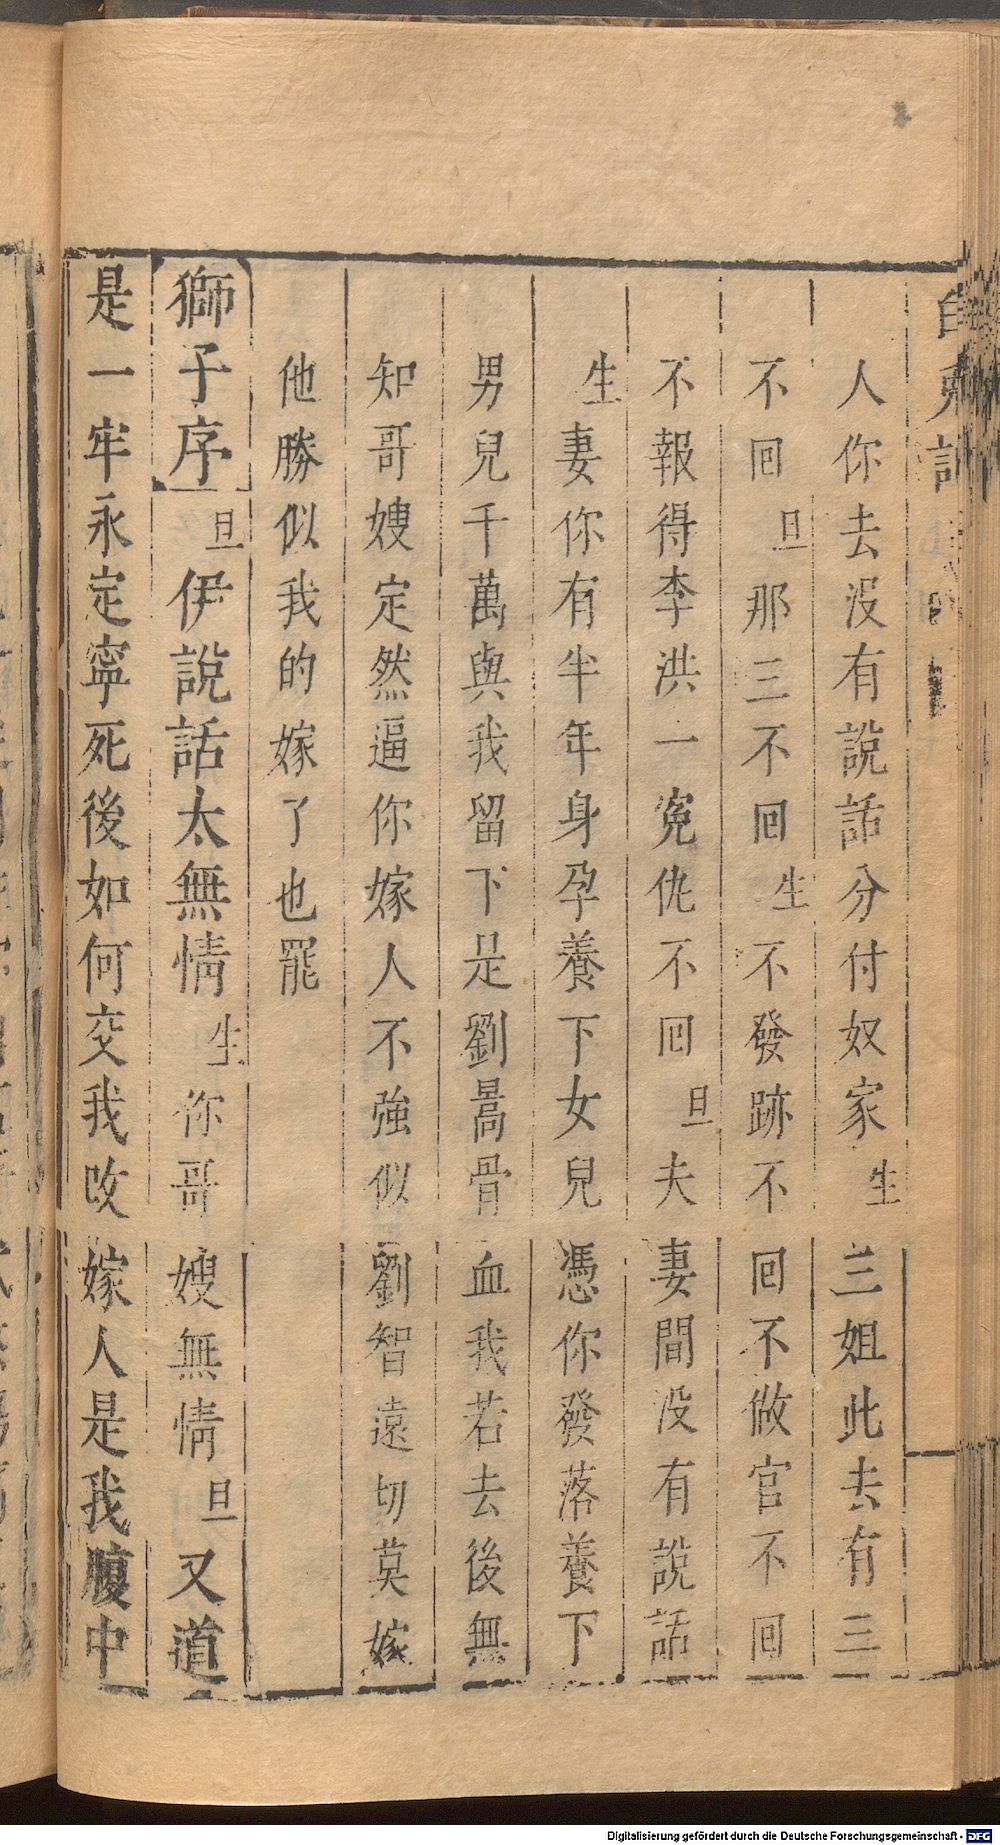 白兎記
人你去没有說話分付奴家生三姐此去有三
不回旦那三不回生不發跡不回不做官不回
不報得李洪一寃仇不回旦夫妻間没有說話
生妻你有半年身孕養下女兒憑你發落養下
男兒千萬與我留下是劉暠骨血我若去後無
知哥嫂定然逼你嫁人不強似劉智遠切莫嫁
他勝似我的嫁了也罷
獅子序旦伊說話太無情生你哥嫂無情旦又道
是一牢永定寧死後如何交我改嫁人是我腹中
Digitalisierung gefördert durch die Deutsche Forschungsgemeinschaft - DFG